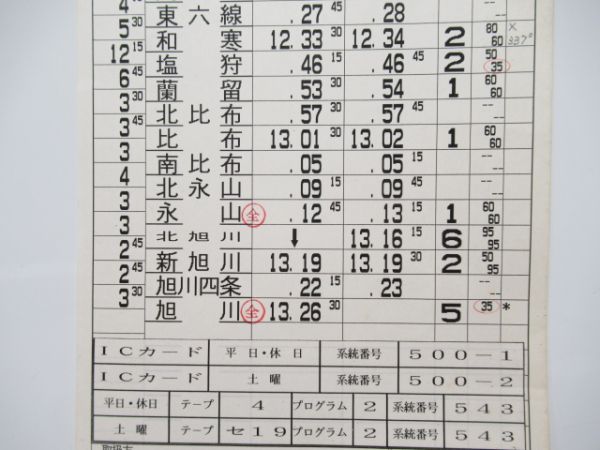 4
東六線 .27 45 .28
5 30
和寒 12.33 30 12.34 2 80 60 × 337°
12 15
塩狩 .46 15 .46 45 2 50 35
6 45
蘭留 .53 30 .54 1 60 60
3 30
北比布 .57 30 .57 45 -- --
3 45
比布 13.01 30 13.02 1 60 60
3
南比布 .05 .05 15 -- --
4
北永山 .09 15 .09 45 -- --
3
永山 全 .12 45 .13 15 1 60 60
3
北旭川 ↓ 13.16 15 6 95 95
2 45
新旭川 13.19 13.19 30 2 50 95
2 45
旭川四条 .22 15 .23 -- --
3 30
旭川 全 13.26 30 5 35 *
ICカード 平日・休日 系統番号 500-1
ICカード 土曜 系統番号 500-2
平日・休日 テープ 4 プログラム 2 系統番号 543
土曜 テープ セ19 プログラム 2 系統番号 543